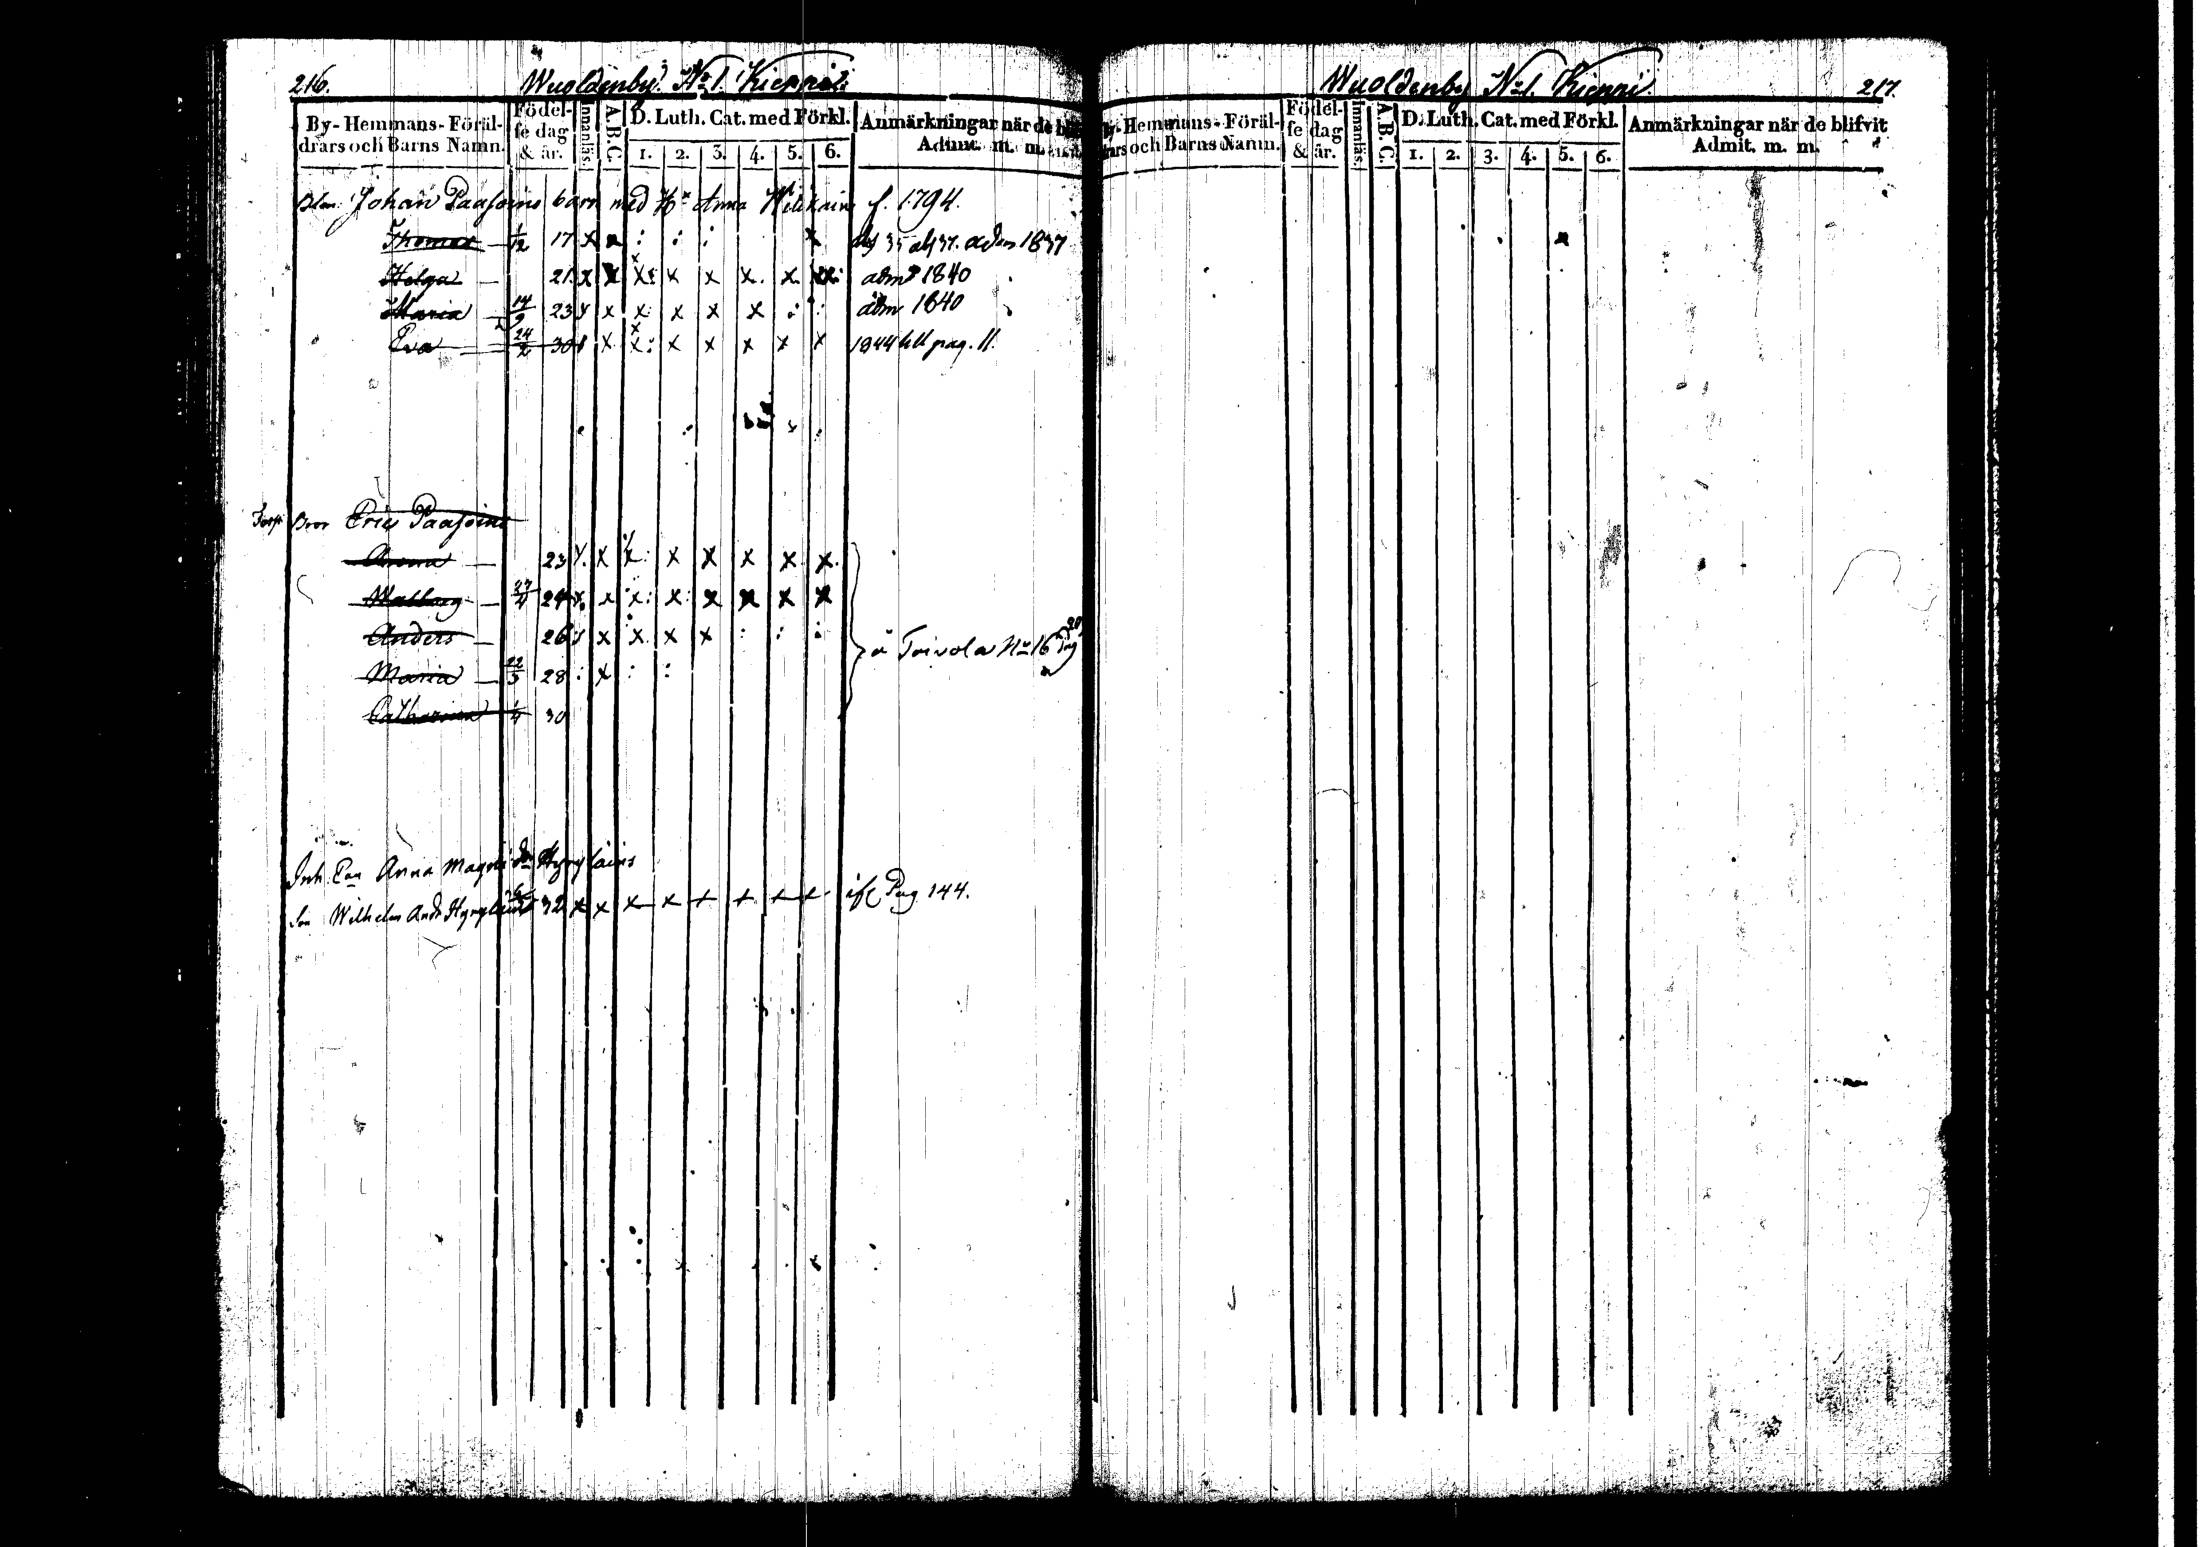 216.
Wuoldenby. No 1. Kienri
By- Hemmans- Föräl-
drars och Barns Namn.
Födel-
se dag
& år.
Innanläs.
A.B.C.
D. Luth. Cat. med Förkl.
1. 2. 3. 4. 5. 6.
Anmärkningar när de
Admit. m. m.
Johan Paasoins barn med H Anna f. 1794.
Thomas — 1/12 17 x x : : : x 35 37. 1837
Helga — 21. x x x: x x x. x. adm 1840
Maria — 14/9 23 x x x: x x x : : adm 1840
Eva — 24/2 30 x x: x x x x x 1844 pag. 11.
Bror Eric Paasoins
23 x. x x: x x x x. x.
Walborg — 27/4 24 x. x x: x: x x x x
Anders — 26 x x x. x x : : :
å Toivola No 16
Maria — 22/3 28 : x : :
Catharina 1/4 30
Inh. Anna
Son Wilhelm And. 32 x x x x + + + + Pag 144.
Wuoldenby No 1. Kienri
217.
By- Hemmans- Föräl-
drars och Barns Namn.
Födel-
se dag
& år.
Innanläs.
A.B.C.
D. Luth. Cat. med Förkl.
1. 2. 3. 4. 5. 6.
Anmärkningar när de blifvit
Admit. m. m.